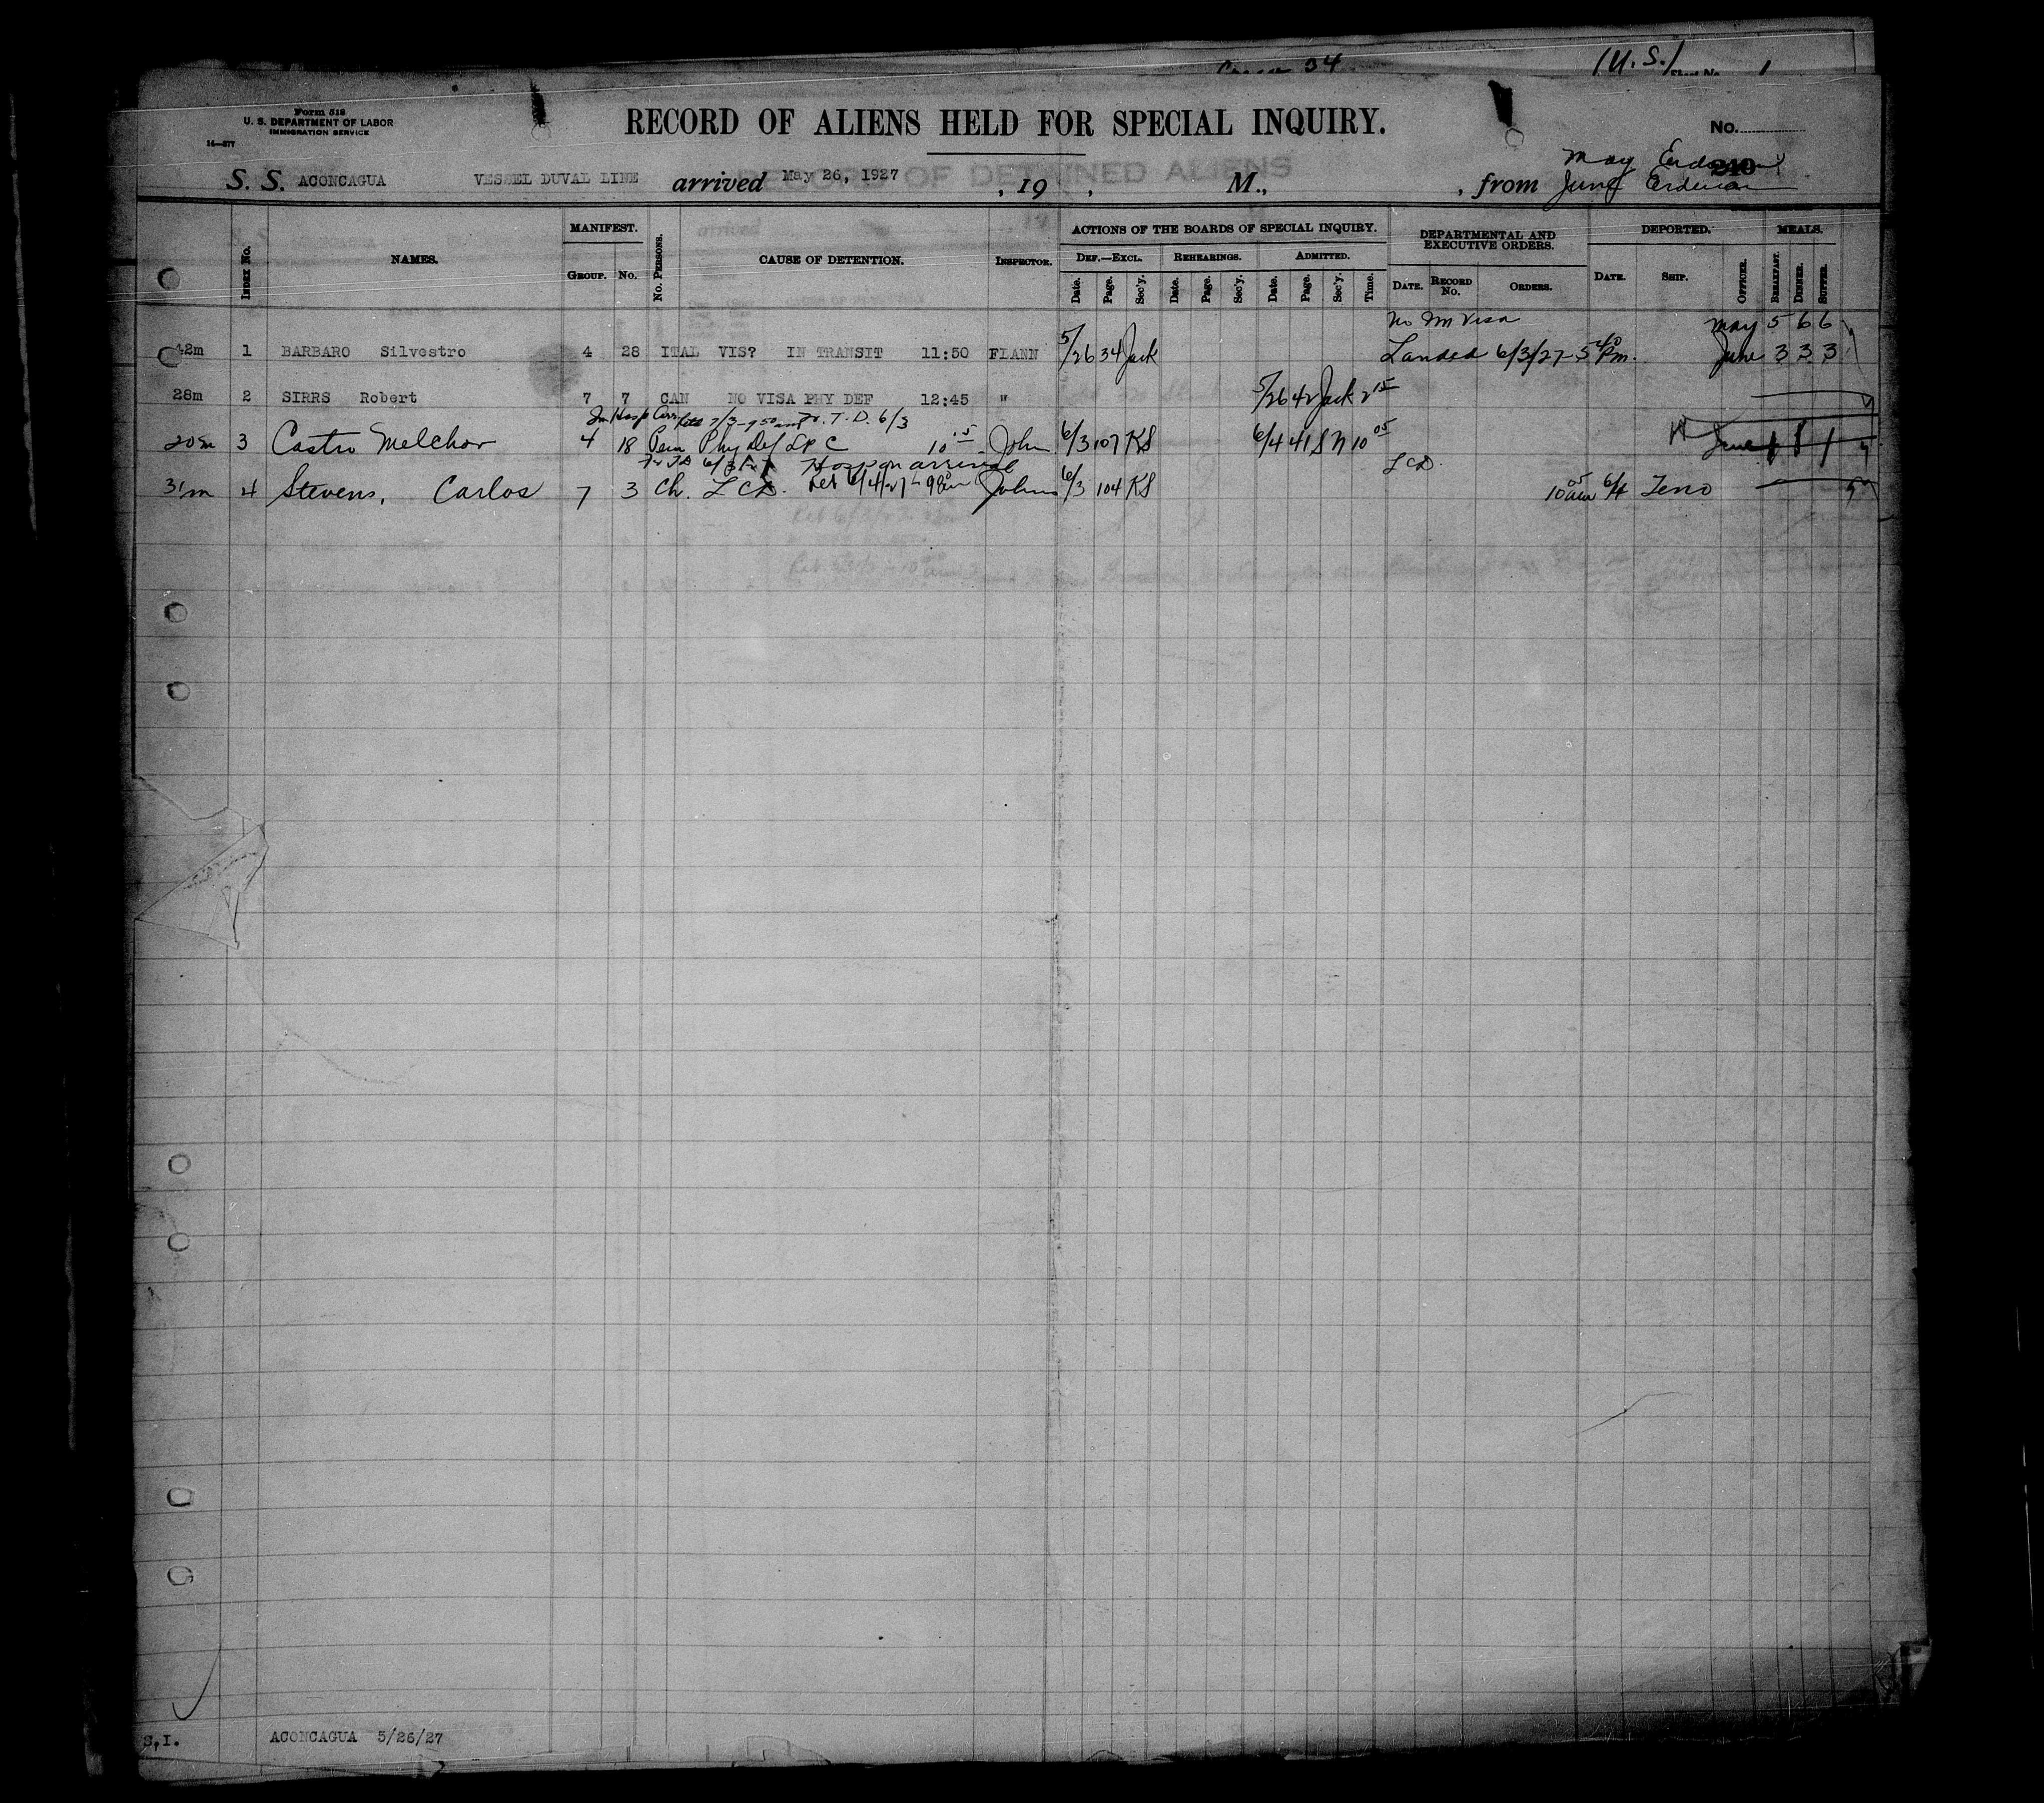 (U.S.)
34
Sheet No. 1
Form 518
U. S. DEPARTMENT OF LABOR
IMMIGRATION SERVICE
14—577
RECORD OF ALIENS HELD FOR SPECIAL INQUIRY.
No.
240
May Erdman
S. S. ACONCAGUA VESSEL DUVAL LINE arrived May 26, 1927, 19 , M., , from June Erdman
RECORD OF DETAINED ALIENS
INDEX NO. NAMES. MANIFEST. GROUP. NO. NO. PERSONS. CAUSE OF DETENTION. INSPECTOR. ACTIONS OF THE BOARDS OF SPECIAL INQUIRY. DEPARTMENTAL AND EXECUTIVE ORDERS. DEPORTED. MEALS.
DEF.—EXCL. REHEARINGS. ADMITTED.
Date. Page. Sec'y. Date. Page. Sec'y. Date. Page. Sec'y. Time. DATE. RECORD NO. ORDERS. DATE. SHIP. OFFICER. BREAKFAST. DINNER. SUPPER.
No Im Visa May 5 6 6
42m 1 BARBARO Silvestro 4 28 ITAL VIS? IN TRANSIT 11:50 FIANN 5/26 34 Jack Landed 6/3/27 5 40 Pm. June 3 3 3
28m 2 SIRRS Robert 7 7 CAN NO VISA PHY DEF 12:45 " 5/26 42 Jack 2 15
T. D. 6/3
20m 3 Castro Melchor 4 18 Peru Phy Def LPC 10 15 John 6/3 107 KS 6/4 41 S N 10 05 June 1 1
Hosp on arrival L C D.
31m 4 Stevens, Carlos 7 3 Ch. L C D. Ret 6/4/27 Johns 6/3 104 KS 10 05 am 6/4 Teno
S.I. ACONCAGUA 5/26/27